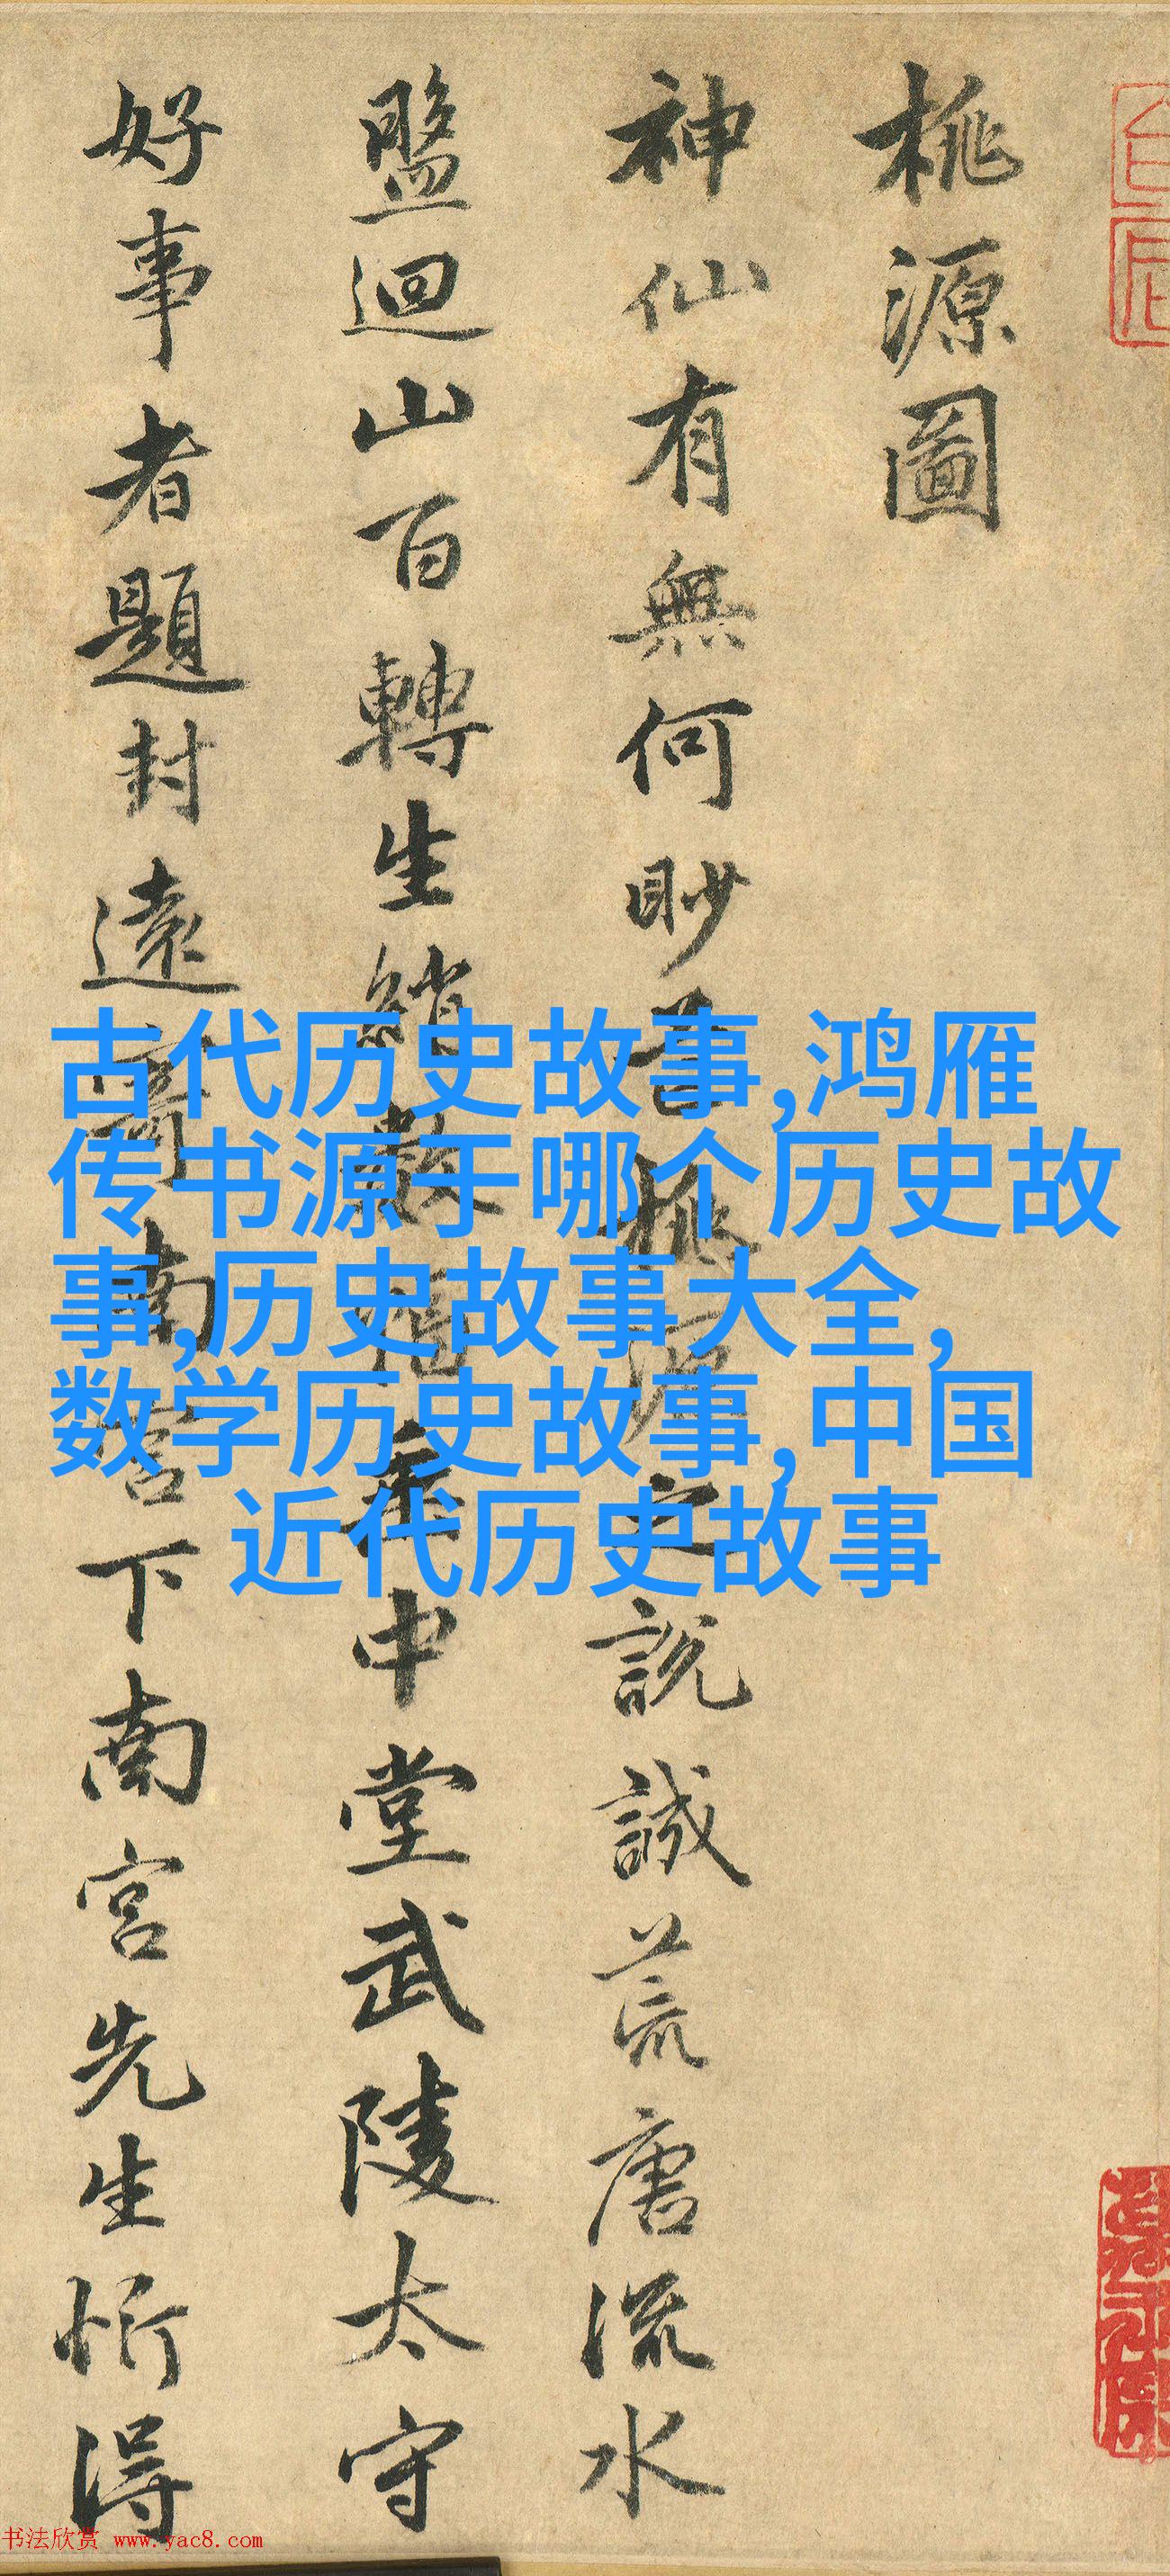 桃源圖
神仙有無何眇桃源之說誠荒唐流水
盤迴山百轉生綃數幅垂中堂武陵太守
好事者題封遠寄南宮下南宮先生忻得
古代历史故事,鸿雁
传书源于哪个历史故
事,历史故事大全,
数学历史故事,中国
近代历史故事
书法欣赏 www.yac8.com